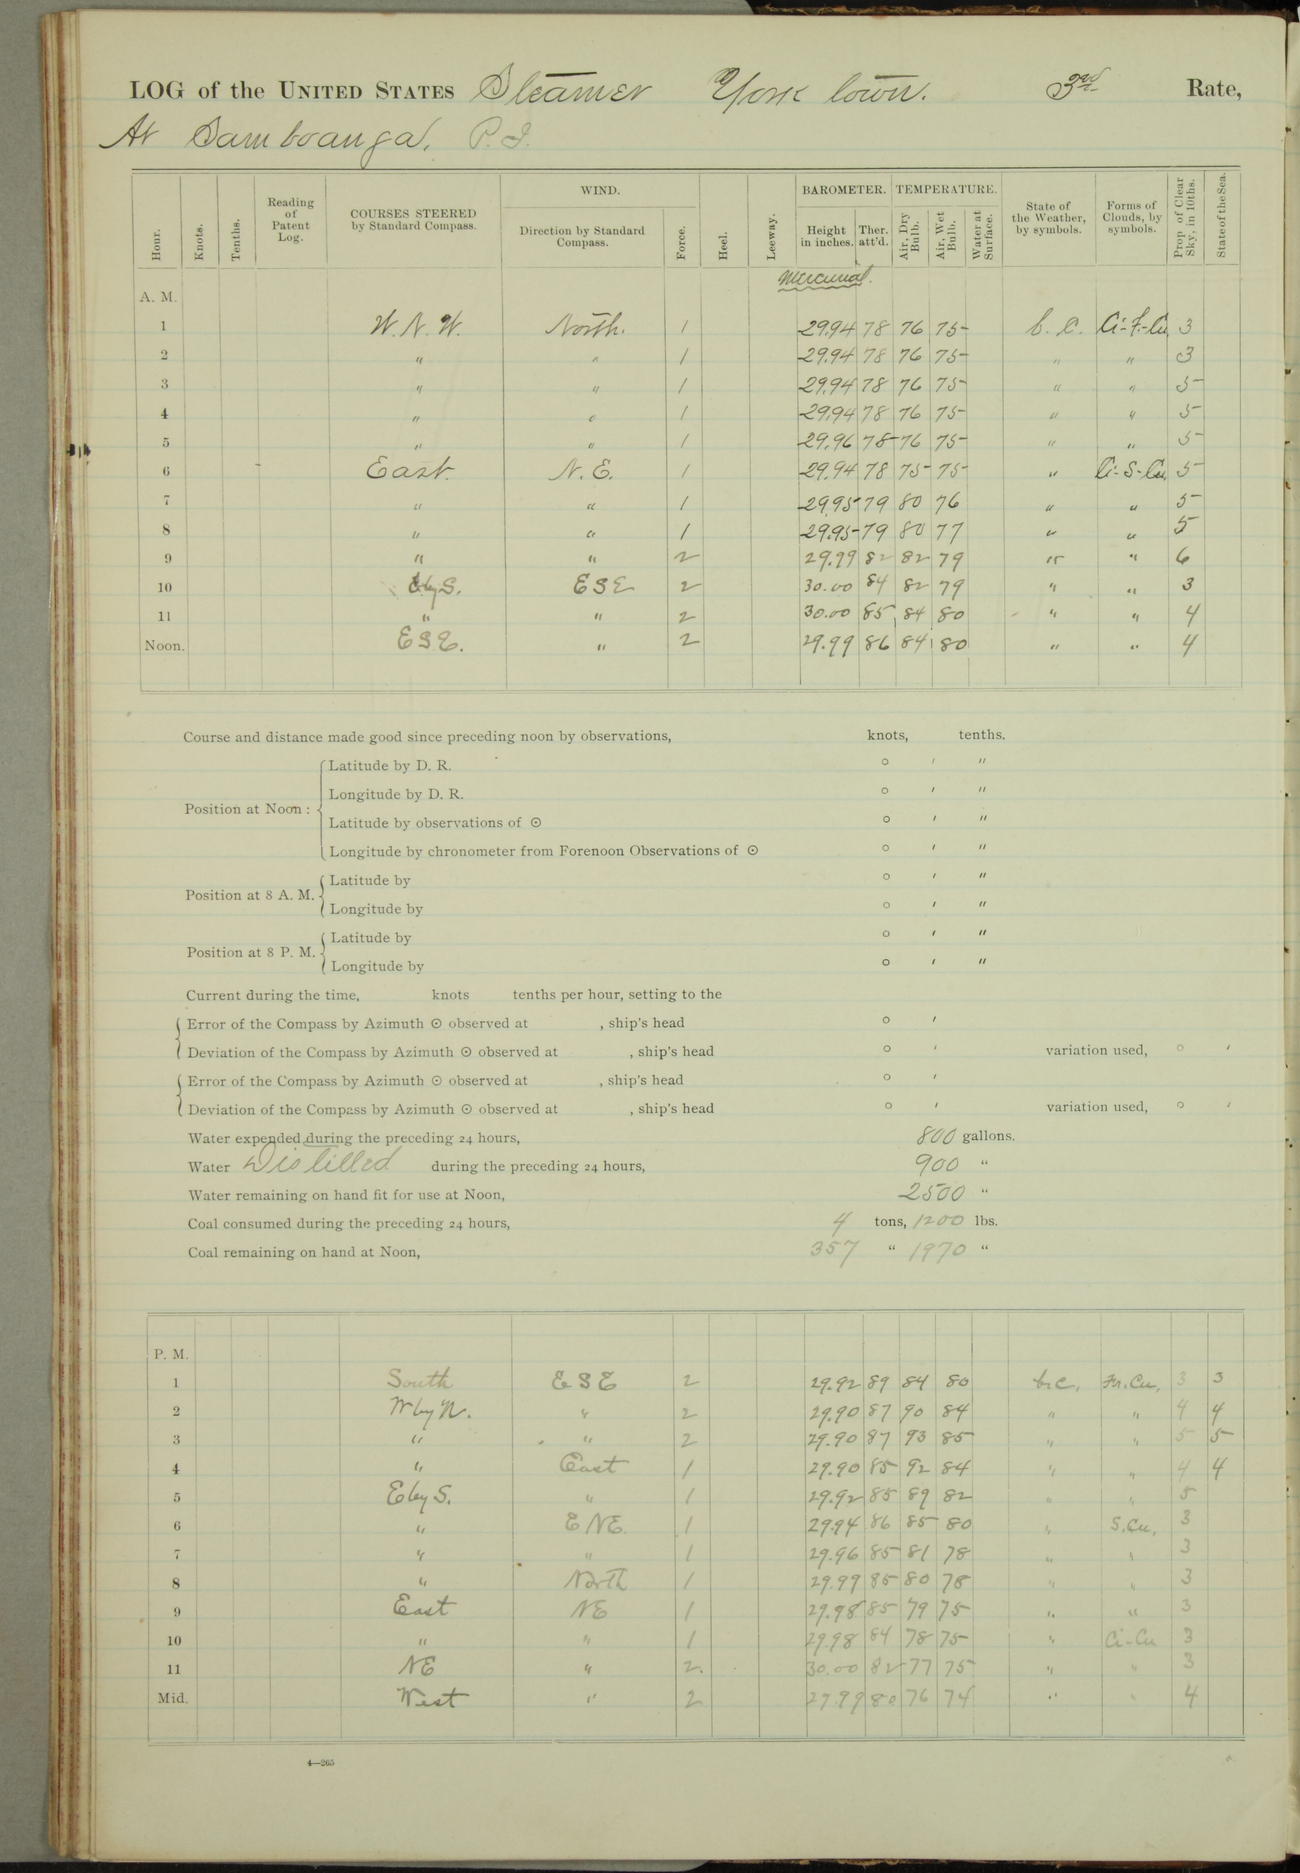 LOG of the UNITED STATES Steamer Yorktown. 3rd Rate,
At Samboanga, P.I.
Hour. Knots. Tenths. Reading of Patent Log. COURSES STEERED by Standard Compass. WIND. Direction by Standard Compass. Force. Heel. Leeway. BAROMETER. Height in inches. Ther. att'd. TEMPERATURE. Air, Dry Bulb. Air, Wet Bulb. Water at Surface. State of the Weather, by symbols. Forms of Clouds, by symbols. Prop. of Clear Sky, in 10ths. State of the Sea.
Mercurial.
A. M.
1 W. N. W. North. 1 29.94 78 76 75 b. c. Ci-F-Cu 3
2 " " 1 29.94 78 76 75 " " 3
3 " " 1 29.94 78 76 75 " " 5
4 " " 1 29.94 78 76 75 " " 5
5 " " 1 29.96 78 76 75 " " 5
6 East. N. E. 1 29.94 78 75 75 " Ci-S-Cu 5
7 " " 1 29.95 79 80 76 " " 5
8 " " 1 29.95 79 80 77 " " 5
9 " " 2 29.99 82 82 79 " " 6
10 E by S. ESE 2 30.00 84 82 79 " " 3
11 " " 2 30.00 85 84 80 " " 4
Noon. ESE. " 2 29.99 86 84 80 " " 4
Course and distance made good since preceding noon by observations, knots, tenths.
Position at Noon: Latitude by D. R. ° ′ ″
Longitude by D. R. ° ′ ″
Latitude by observations of ☉ ° ′ ″
Longitude by chronometer from Forenoon Observations of ☉ ° ′ ″
Position at 8 A. M. Latitude by ° ′ ″
Longitude by ° ′ ″
Position at 8 P. M. Latitude by ° ′ ″
Longitude by ° ′ ″
Current during the time, knots tenths per hour, setting to the
Error of the Compass by Azimuth ☉ observed at , ship's head ° ′
Deviation of the Compass by Azimuth ☉ observed at , ship's head ° ′ variation used, ° ′
Error of the Compass by Azimuth ☉ observed at , ship's head ° ′
Deviation of the Compass by Azimuth ☉ observed at , ship's head ° ′ variation used, ° ′
Water expended during the preceding 24 hours, 800 gallons.
Water Distilled during the preceding 24 hours, 900 "
Water remaining on hand fit for use at Noon, 2500 "
Coal consumed during the preceding 24 hours, 4 tons, 1200 lbs.
Coal remaining on hand at Noon, 357 " 1970 "
P. M.
1 South ESE 2 29.92 89 84 80 b.c. Fr.Cu. 3 3
2 W by N. " 2 29.90 87 90 84 " " 4 4
3 " " 2 29.90 87 93 85 " " 5 5
4 " East 1 29.90 85 92 84 " " 4 4
5 E by S. " 1 29.92 85 89 82 " " 5
6 " ENE. 1 29.94 86 85 80 " S.Cu. 3
7 " " 1 29.96 85 81 78 " " 3
8 " North 1 29.99 85 80 78 " " 3
9 East NE 1 29.98 85 79 75 " " 3
10 " " 1 29.98 84 78 75 " Ci-Cu 3
11 NE " 2. 30.00 82 77 75 " " 3
Mid. West " 2 29.99 80 76 74 " " 4
4—265